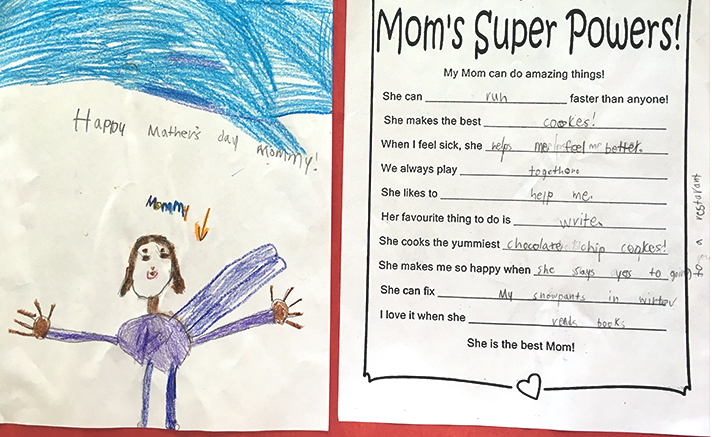 Happy Mather's day Mommy!
Mommy
Mom's Super Powers!
My Mom can do amazing things!
She can run faster than anyone!
She makes the best cookes!
When I feel sick, she helps me feel better.
We always play together
She likes to help me.
Her favourite thing to do is write.
She cooks the yummiest chocolate chip cookes!
She makes me so happy when she says yes to going to a restarant
She can fix My snowpants in winter
I love it when she reads books
She is the best Mom!